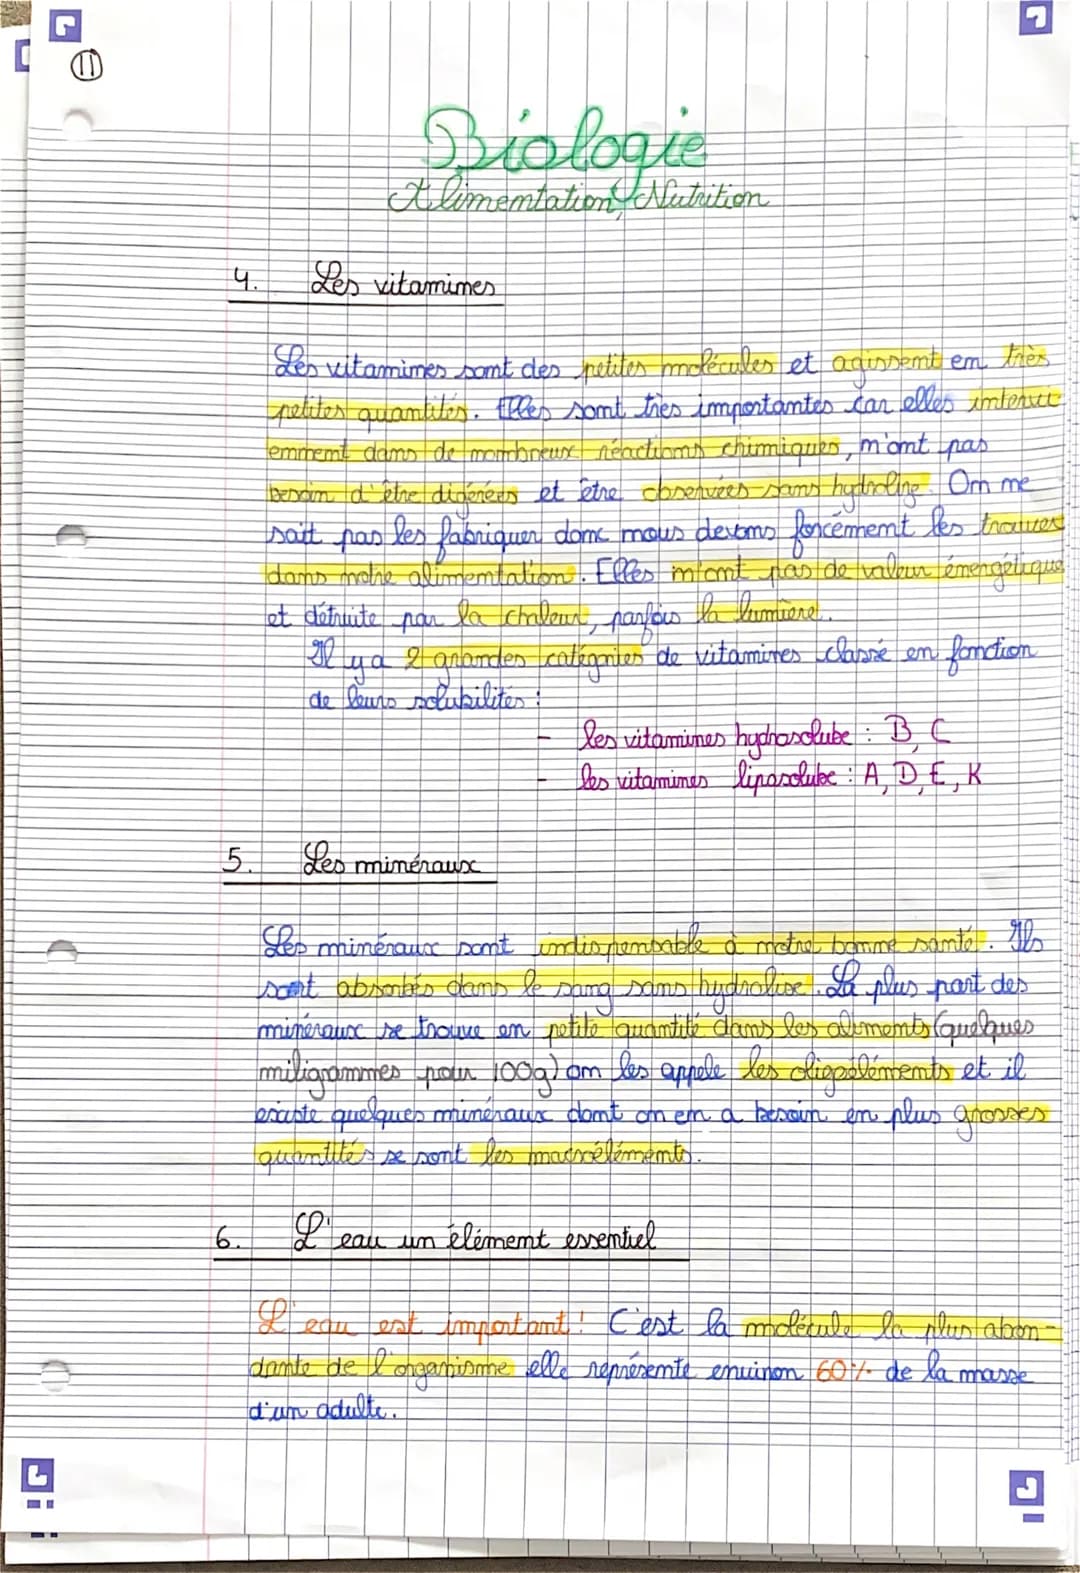 11
Biologie
Alimentation, Nutrition
4. Les vitamines
Les vitamines sont des petites molécules et agissent en très
petites quantités. Elles sont très importantes car elles intervi
ennent dans de nombreux réactions chimiques, n'ont pas
besoin d'être digérées et être observées sans hydroline. On ne
sait pas les fabriquer donc nous devons forcément les trouver
dans notre alimentation. Elles n'ont pas de valeur énergétique
et détruite par la chaleur, parfois la lumière.
Il y a 2 grandes catégories de vitamines classé en fonction
de leurs solubilités :
- les vitamines hydrosolube : B, C
- les vitamines liposolube : A, D, E, K
5. Les minéraux
Les minéraux sont indispensable à notre bonne santé. Ils
sont absorbés dans le sang sans hydrolise. La plus part des
minéraux se trouve en petite quantité dans les aliments (quelques
miligrammes pour 100g) on les appele les oligoéléments et il
existe quelques minéraux dont on en a besoin en plus grosses
quantités se sont les macroéléments.
6. L'eau un élément essentiel
L'eau est important! C'est la molécule la plus abon-
dante de l'organisme elle représente environ 60% de la masse
d'un adulte.